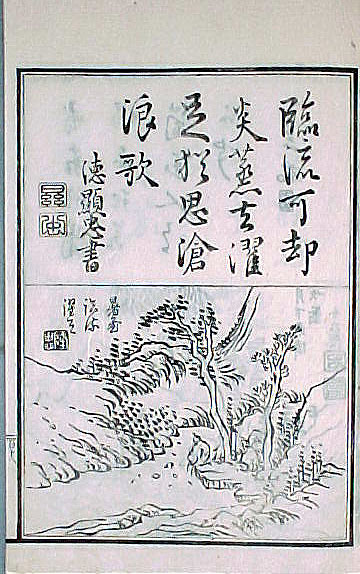 臨流可却
炎蒸去濯
足猶思滄
浪歌
德顯忠書